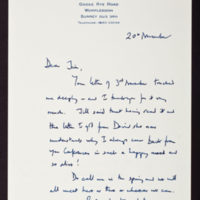 Goose Rye House
Worplesdon
Surrey
20th November
Dear Jim,
Your letter of 3rd November touched
me deeply and I thank you for it very
much. Jill said that having read it and
the letter I got from David she was
understands why I always come back from
your Conferences in such a happy mood and
so alive!
Do call me in the spring and we will
all meet here or there or wherever we can.